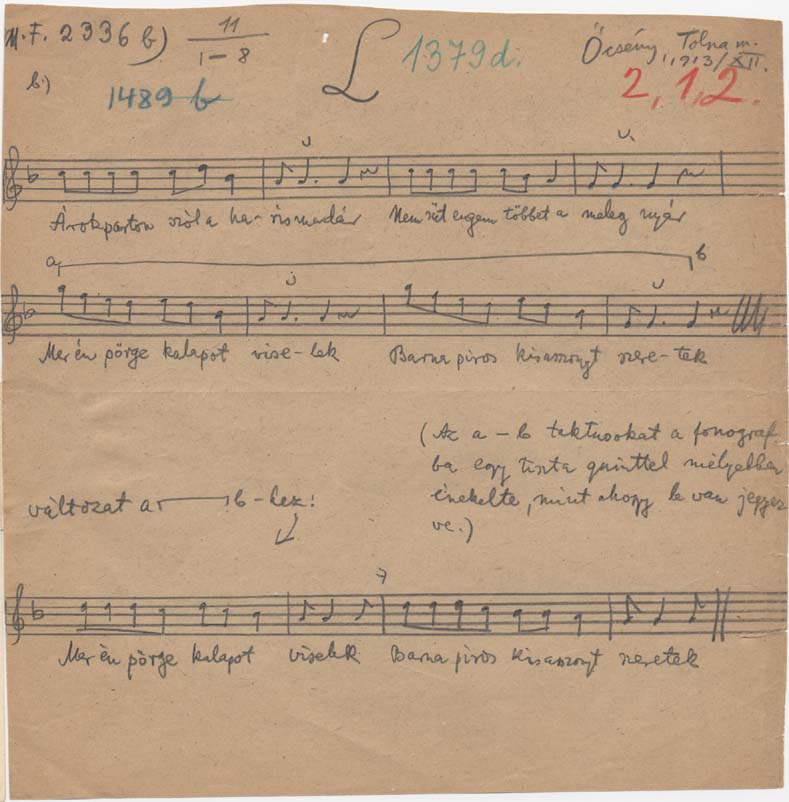 M.F. 2336 b) 11
1–8
L
1379d.
Őcsény, Tolna m.
1913/XII.
b)
1489 b
2, 1, 2.
Árokparton szól a ha-rismadár Nem süt engem többet a meleg nyár
a b
Mer én pörge kalapot vise-lek Barna piros kisasszonyt szere-tek
(Az a – b taktusokat a fonograf
ba egy tiszta quinttel mélyebben
énekelte, mint ahogy le van jegyez
ve.)
változat a b-hez:
7
Mer én pörge kalapot viselek Barna piros kisasszonyt szeretek